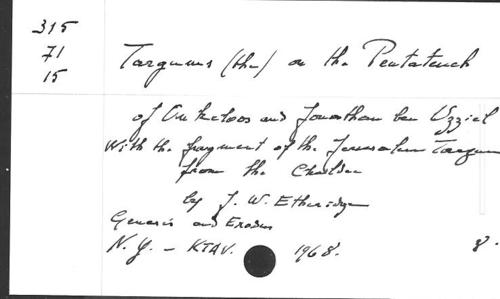 315
71
15
Targums (the) on the Pentateuch
of Onkelos and Jonathan ben Uzziel
With the fragment of the Jerusalem Targum
from the Chaldee
by J. W. Etheridge
Genesis and Exodus
N. Y. - KTAV. 1968. 8.